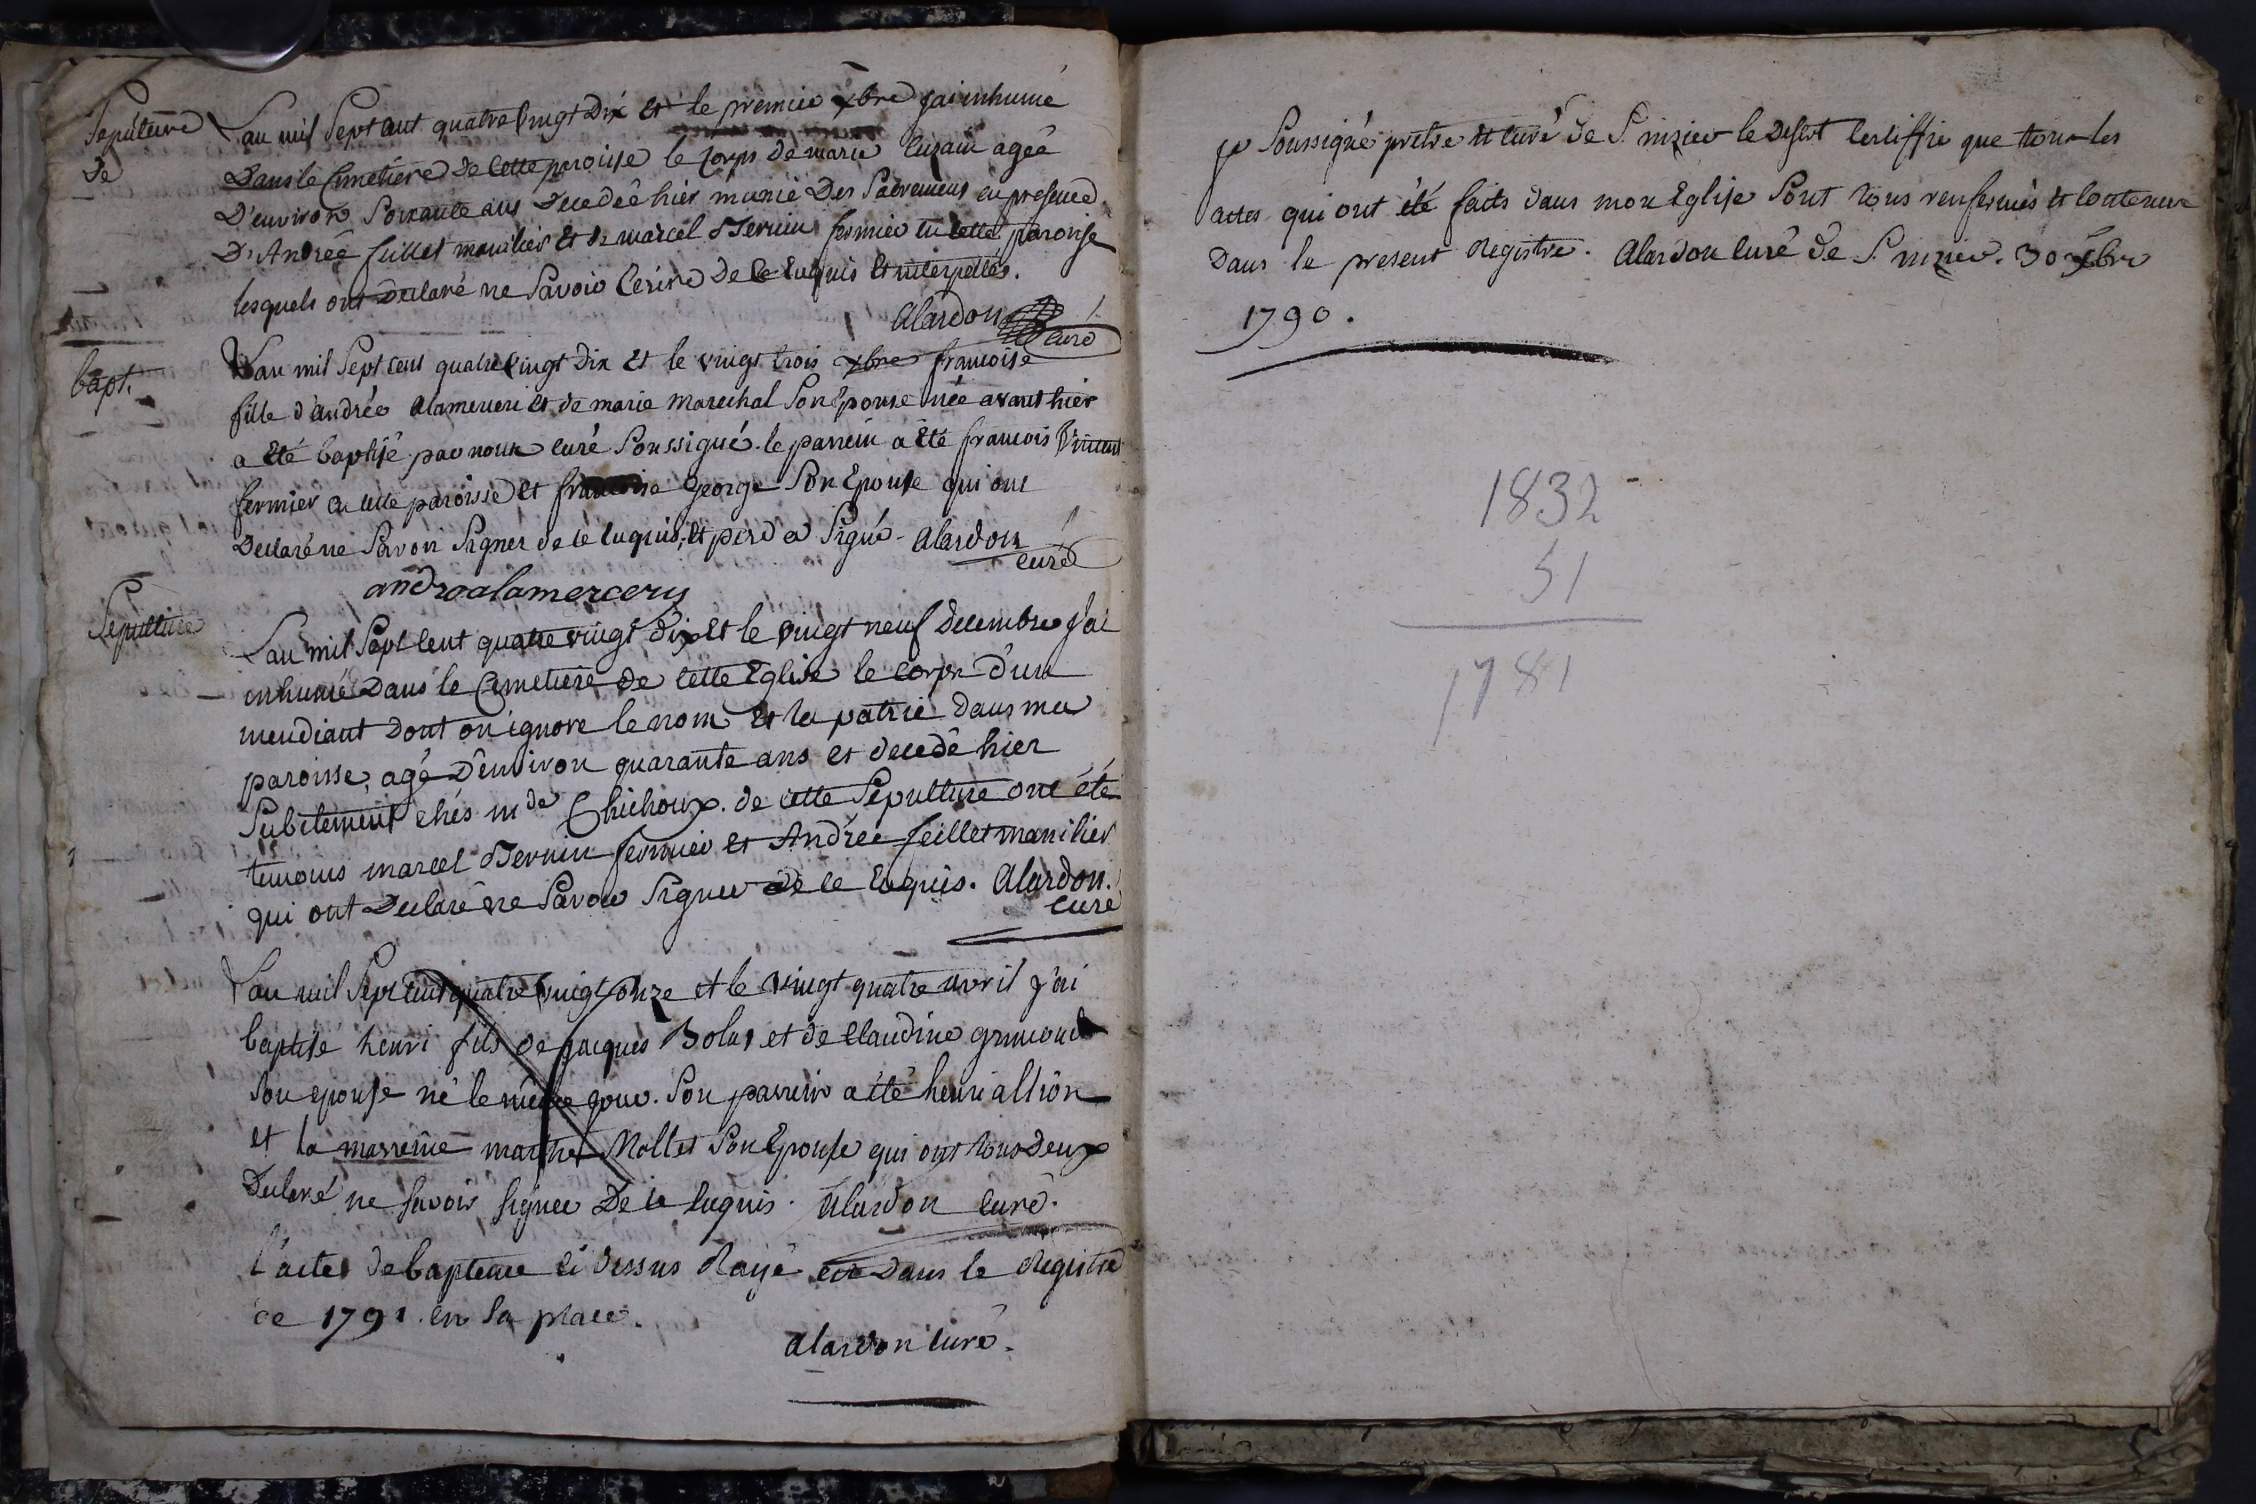 Sepulture
de
L'an mil Sept cent quatre vingt Dix et le premier xbre jai inhumé
Dans le Cimetiere De Cette paroisse le Corps de marie agée
D'environ Soixante ans Decedée hier munie Des Sacremens en presence
D'Andrée fuillet manilier et de marcel fermier en cette paroisse
lesquels ont Declaré ne Savoir Ecrire De Ce Enquis et interpellés.
Alardon
curé
bapt.
L'an mil Sept cent quatre vingt dix et le vingt trois xbre francoise
fille d'andrée alamerceri et de marie marechal Son Epouse née avant hier
a été baptisé par nous curé Soussigné. le parrein a été francois Vincent
fermier en cette paroisse et francoise george Son Epouse qui ont
Declaré ne Savoir Signer de ce enquis, et a Signé - Alardon
curé
andrealamercery
Sepulture
L'an mil Sept cent quatre vingt dix et le vingt neuf Decembre j'ai
inhumé Dans le Cimetiere de cette Eglise le corps d'un
mendiant Dont on ignore le nom et la patrie dans ma
paroisse, agé D'environ quarante ans et decedé hier
Subitement chés mde Chichoux. de cette Sepulture ont été
temoins marcel fermier et Andrée feillet manilier
qui ont Declaré ne Savoir Signer de ce Enquis. Alardon.
curé
L'an mil Sept cent quatre vingt onze et le vingt quatre avril j'ai
baptisé henri fils de jacques et de Claudine
Son epouse né le même jour. Son parrein a été henri allion
et la marreine marthe Mollet Son Epouse qui ont tous Deux
Declaré ne Savoir Signer De ce Enquis. Alardon curé.
l'acte de bapteme ci dessus Rayé est Dans le Registre
de 1791. en Sa place.
alardon curé.
je Soussigné pretre et curé de S. nizier le Desert Certiffie que tous les
actes qui ont été faits dans mon Eglise Sont tous renfermés et contenus
Dans le present Registre. Alardon curé de S. nizier. 30 xbre
1790.
1832
51
1781